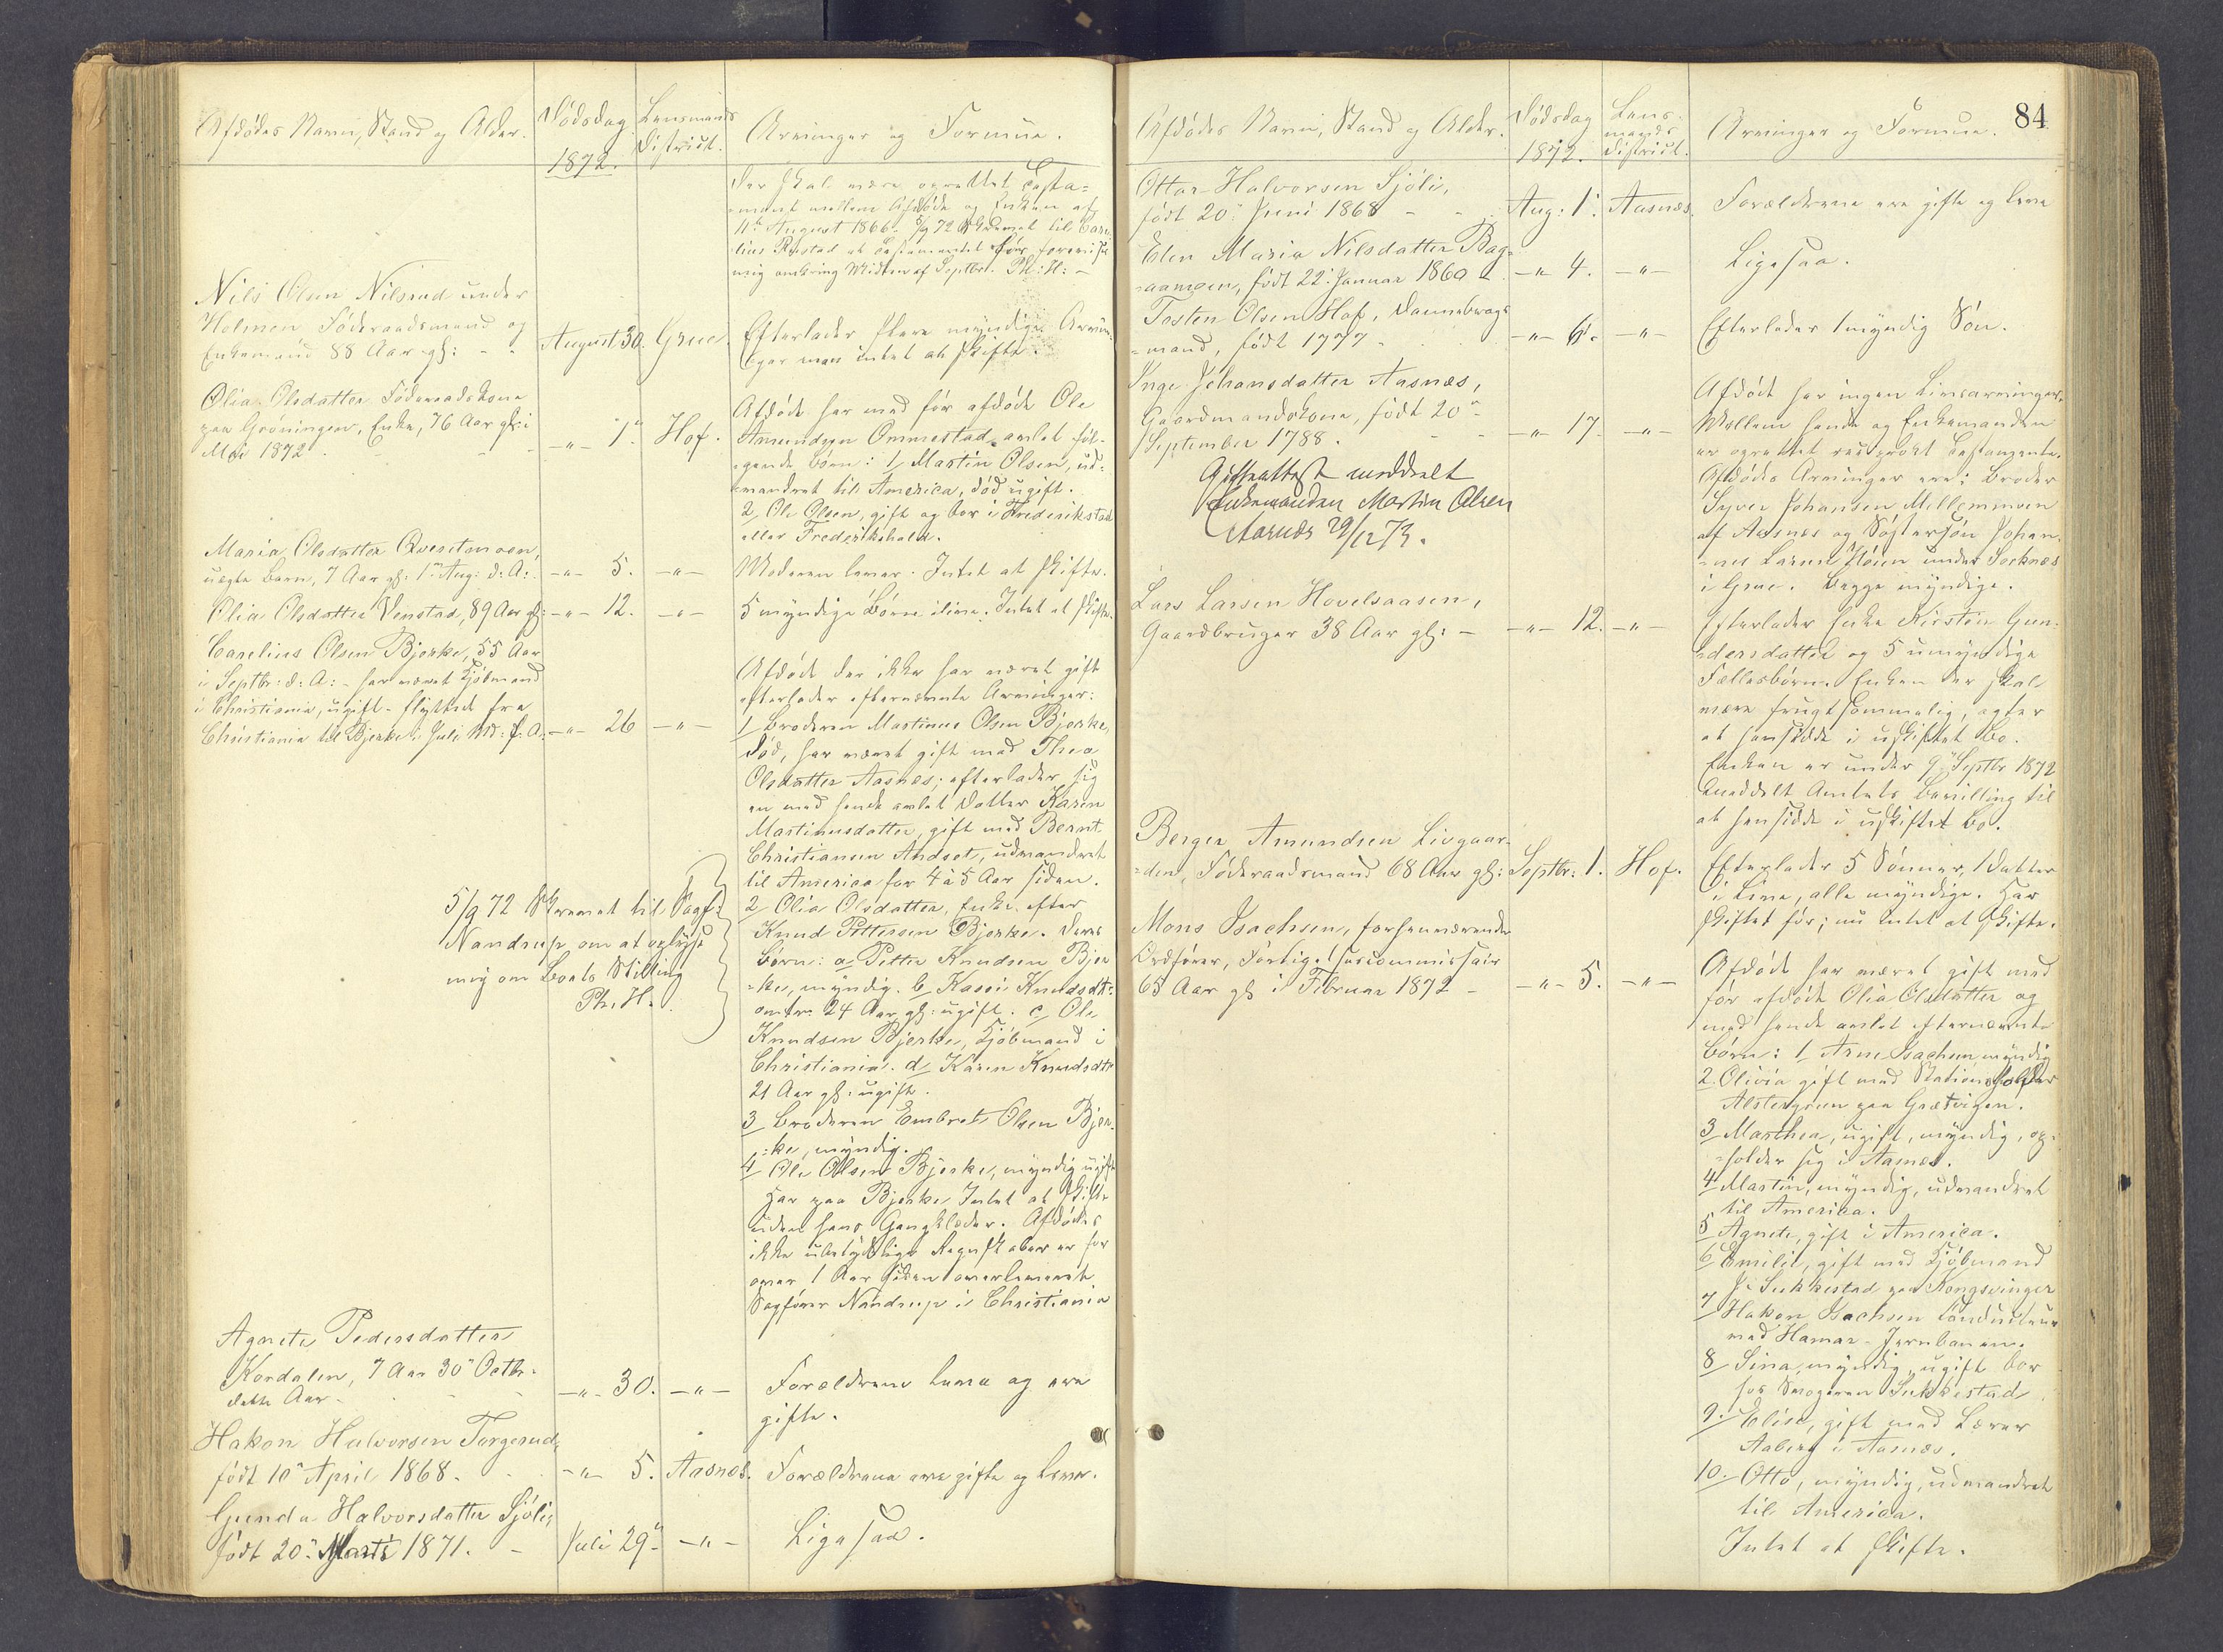 Afdødes Navn, Stand og Alder.
Dødsdag
1872.
Lensmands
District.
Arvinger og Formue.
Der skal være oprettet Testa=
=ment mellem Afdøde og Enken af
11te August 1866. 5/9 72 Skrevet til Care
lius Rustad at Testamentet bør forevises
mig omkring Midten af Septbr. Ph: H: -
Nils Olsen Nilsrud under
Holmen, Føderaadsmand og
Enkemand 88 Aar gl: - -
August 30. Grue.
Efterlader flere myndige Arvin-
ger men intet at skifte.
Olia Olsdatter Føderaadskone
paa Grøningen, Enke, 76 Aar gl: i
Mai 1872
-"- 1. Hof.
Afdøde har med før afdøde Ole
Amundsen Ommestad avlet føl-
gende Børn: 1/ Martin Olsen, ud-
vandret til America, død ugift.
2/ Ole Olsen, gift og bor i Frederikstad
eller Frederikshald.
Maria Olsdatter Qvestmoen,
uægte Barn, 7 Aar gl: 1ste Aug: d: A:
-"- 5. -"-
Moderen lever. Intet at skifte.
Olia Olsdatter Venstad, 89 Aar gl:
-"- 12. -"-
5 myndige Børn ilive. Intet at skifte.
Carelius Olsen Bjerke, 55 Aar
i Septbr: d: A: - har været Kjøbmand
i Christiania, ugift - flyttede fra
Christiania til Bjerke i Juli Md: f: A:
-"- 26 -"-
Afdøde der ikke har været gift
efterlader efternævnte Arvinger:
1/ Broderen Martinus Olsen Bjerke,
død, har været gift med Thea
Olsdatter Aasnes; efterlader sig
en med hende avlet Datter Karen
Martinusdatter, gift med Bernt
Christiansen Andset, udvandret
til America for 4 à 5 Aar siden.
2/ Olia Olsdatter, Enke efter
Knud Pettersen Bjerke. Deres
Børn: a/ Petter Knudsen Bjer
-ke, myndig. b/ Kasei Knudsdtr
omtr. 24 Aar gl: ugift. c/ Ole
Knudsen Bjerke, Kjøbmand i
Christiania. d/ Karen Knudsdtr
21 Aar gl: ugift.
3/ Broderen Embret Olsen Bjer-
-ke, myndig.
4/ Ole Olsen Bjerke, myndig ugift
Har paa Bjerke Intet at skifte
uden hans Gangklæder. Afdødes
ikke ubetydelige Regnskaber er for
over 1 Aar siden overleveret
Sagfører Nandrup i Christiania
5/9 72 Skrevet til Sagf:
Nandrup om at oplyse
mig om Boets Stilling
Ph. H.
Agnete Pedersdatter
Kordalen, 7 Aar 30te Octbr.
dette Aar -
-"- 30. -"-
Forældrene leve og ere
gifte.
Hakon Halvorsen Torgerud,
født 10de April 1868. -
-"- 5. Aasnes.
Forældrene ere gifte og leve.
Gunda Halvorsdatter Sjøli,
født 20de Marts 1871. -
Juli 29de -"-
Ligesaa.
84
Afdødes Navn, Stand og Alder.
Dødsdag
1872.
Lens-
mands
District.
Arvinger og Formue.
Ottar Halvorsen Sjøli,
født 20de Juni 1868 - -
Aug: 1. Aasnæs.
Forældrene ere gifte og leve
Elen Maria Nilsdatter Bag-
=aamoen, født 22. Januar 1860
-"- 4. -"-
Ligesaa.
Tosten Olsen Hof, Dannebrogs
=mand, født 1777 -
-"- 6. -"-
Efterlader 1 myndig Søn.
Inge Johansdatter Aasnæs,
Gaardmandskone, født 20de
September 1788. - -
-"- 17. -"-
Afdøde har ingen Livsarvinger.
Mellem hende og Enkemanden
er oprettet reciprokt Testamente.
Afdødes Arvinger ere: Broder
Syver Johansen Mellemmoen
af Aasnæs og Søstersøn Johan-
=nes Larsen Moen under Socknæs
i Grue. Begge myndige.
Gifteattest meddelt
Enkemanden Martin Olsen
Aasnæs 29/12 73.
Lars Larsen Hovelsaasen,
Gaardbruger 38 Aar gl: -
-"- 12. -"-
Efterlader Enke Kirstin Gun-
=dersdatter og 5 umyndige
Fællesbørn. Enken der skal
være frugtsommelig, agter
at hensidde i uskiftet Bo.
Enken er under 9de Septbr 1872
meddelt Amtets Bevilling til
at hensidde i uskiftet Bo.
Berger Amundsen Livgaar-
=den, Føderaadsmand 68 Aar gl:
Septbr: 1. Hof.
Efterlader 5 Sønner, 1 Datter
i Live, alle myndige. Har
skiftet før; nu Intet at skifte.
Mons Isachsen, forhenværende
Ordfører, Forligelsescommissair
65 Aar gl: i Februar 1872 -
-"- 5. -"-
Afdøde har været gift med
før afdøde Olia Olsdatter og
med hende avlet efternævnte
Børn: 1/ Arne Isachsen myndig
2. Olivia gift med Stationsholder
Alstergreen paa Grætvigen.
3/ Marthea, ugift, myndig, op-
=holder sig i Aasnæs.
4/ Martin, myndig, udvandret
til America.
5/ Agnete, gift i America.
6/ Emilie, gift med Kjøbmand
J. Sukkestad paa Kongsvinger
7/ Hakon Isachsen Conducteur
ved Hamar-Jernbanen.
8/ Sina, myndig, ugift, bor
hos Svogeren Sukkestad
9. Elise, gift med Lærer
Aaberg i Aasnæs.
10. Otto, myndig, udvandret
til America.
Intet at skifte.